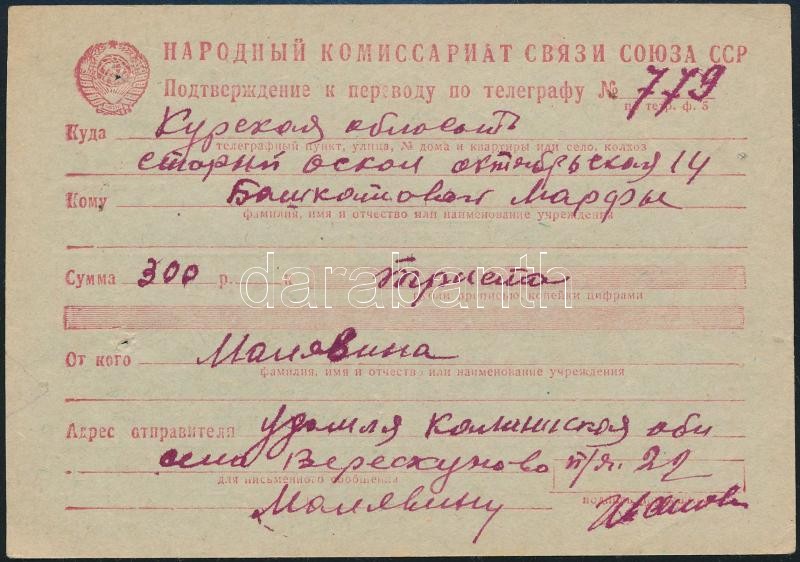 НАРОДНЫЙ КОМИССАРИАТ СВЯЗИ СОЮЗА ССР
Подтверждение к переводу по телеграфу № 779
по тегр. ф. 5
Куда Курская область
телеграфный пункт, улица, № дома и квартиры или село, колхоз
старый оскол октябрьская 14
Кому Башкатовой Марфы
фамилия, имя и отчество или наименование учреждения
Сумма 300 р. к. триста
рубли прописью, копейки цифрами
darabanth
От кого Малявина
фамилия, имя и отчество или наименование учреждения
Адрес отправителя удомля Калининская обл
села п/я. 22
для письменного сообщения
Малявину